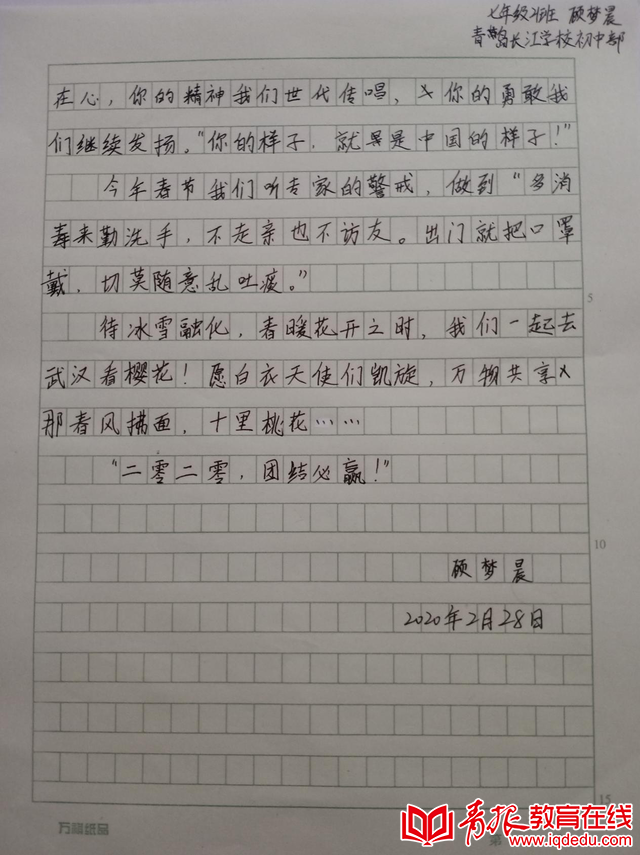 七年级2班 顾梦晨
青岛长江学校初中部
在心，你的精神我们世代传唱，你的勇敢我
们继续发扬。"你的样子，就是中国的样子！"
今年春节我们听专家的警戒，做到"多消
毒来勤洗手，不走亲也不访友。出门就把口罩
戴，切莫随意乱吐痰。"
5
待冰雪融化，春暖花开之时，我们一起去
武汉看樱花！愿白衣天使们凯旋，万物共享
那春风拂面，十里桃花……
"二零二零，团结必赢！"
10
顾梦晨
2020年2月28日
15
万隆纸品
第
青报教育在线
www.iqdedu.com